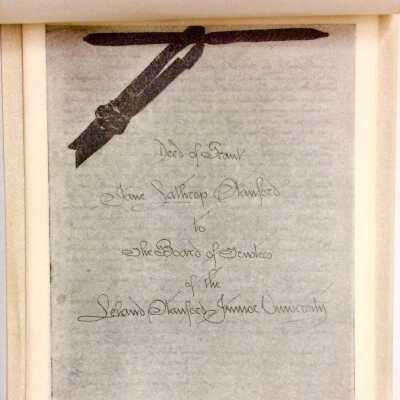 Deed of Grant
Jane Lathrop Stanford
to
The Board of Trustees
of the
Leland Stanford Junior University